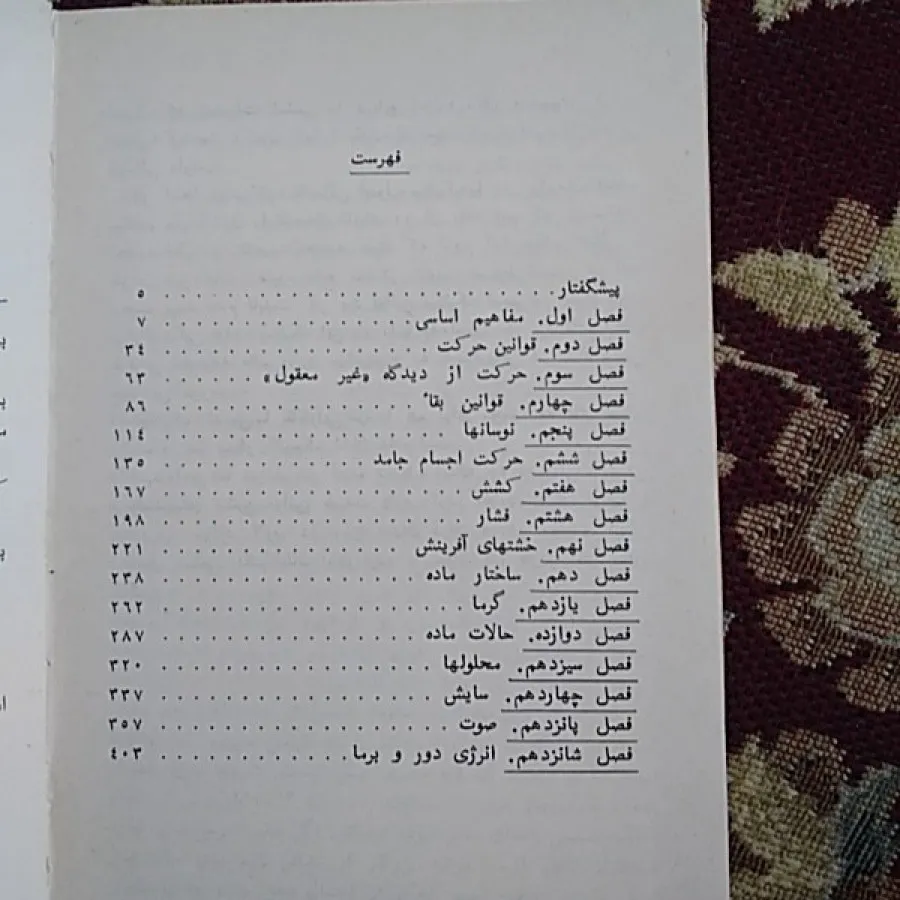 فهرست
پیشگفتار . . . . . . . . . . . . . . . . . . . . . . . . ۵
فصل اول. مفاهیم اساسی . . . . . . . . . . . . . . . . . ۷
فصل دوم. قوانین حرکت . . . . . . . . . . . . . . . . . ۳٤
فصل سوم. حرکت از دیدگاه «غیر معقول» . . . . . . ۶۳
فصل چهارم. قوانین بقاٴ . . . . . . . . . . . . . . . . . ۸۶
فصل پنجم. نوسانها . . . . . . . . . . . . . . . . . . ۱۱٤
فصل ششم. حرکت اجسام جامد . . . . . . . . . . . . . ۱۳۵
فصل هفتم. کشش . . . . . . . . . . . . . . . . . . . ۱۶۷
فصل هشتم. فشار . . . . . . . . . . . . . . . . . . . ۱۹۸
فصل نهم. خشتهای آفرینش . . . . . . . . . . . . . . ۲۲۱
فصل دهم. ساختار ماده . . . . . . . . . . . . . . . . ۲۳۸
فصل یازدهم. گرما . . . . . . . . . . . . . . . . . . . ۲۶۲
فصل دوازده. حالات ماده . . . . . . . . . . . . . . . . ۲۸۷
فصل سیزدهم. محلولها . . . . . . . . . . . . . . . . . ۳۲۰
فصل چهاردهم. سایش . . . . . . . . . . . . . . . . . ۳۳۷
فصل پانزدهم. صوت . . . . . . . . . . . . . . . . . . ۳۵۷
فصل شانزدهم. انرژی دور و برما . . . . . . . . . . . . ٤۰۳